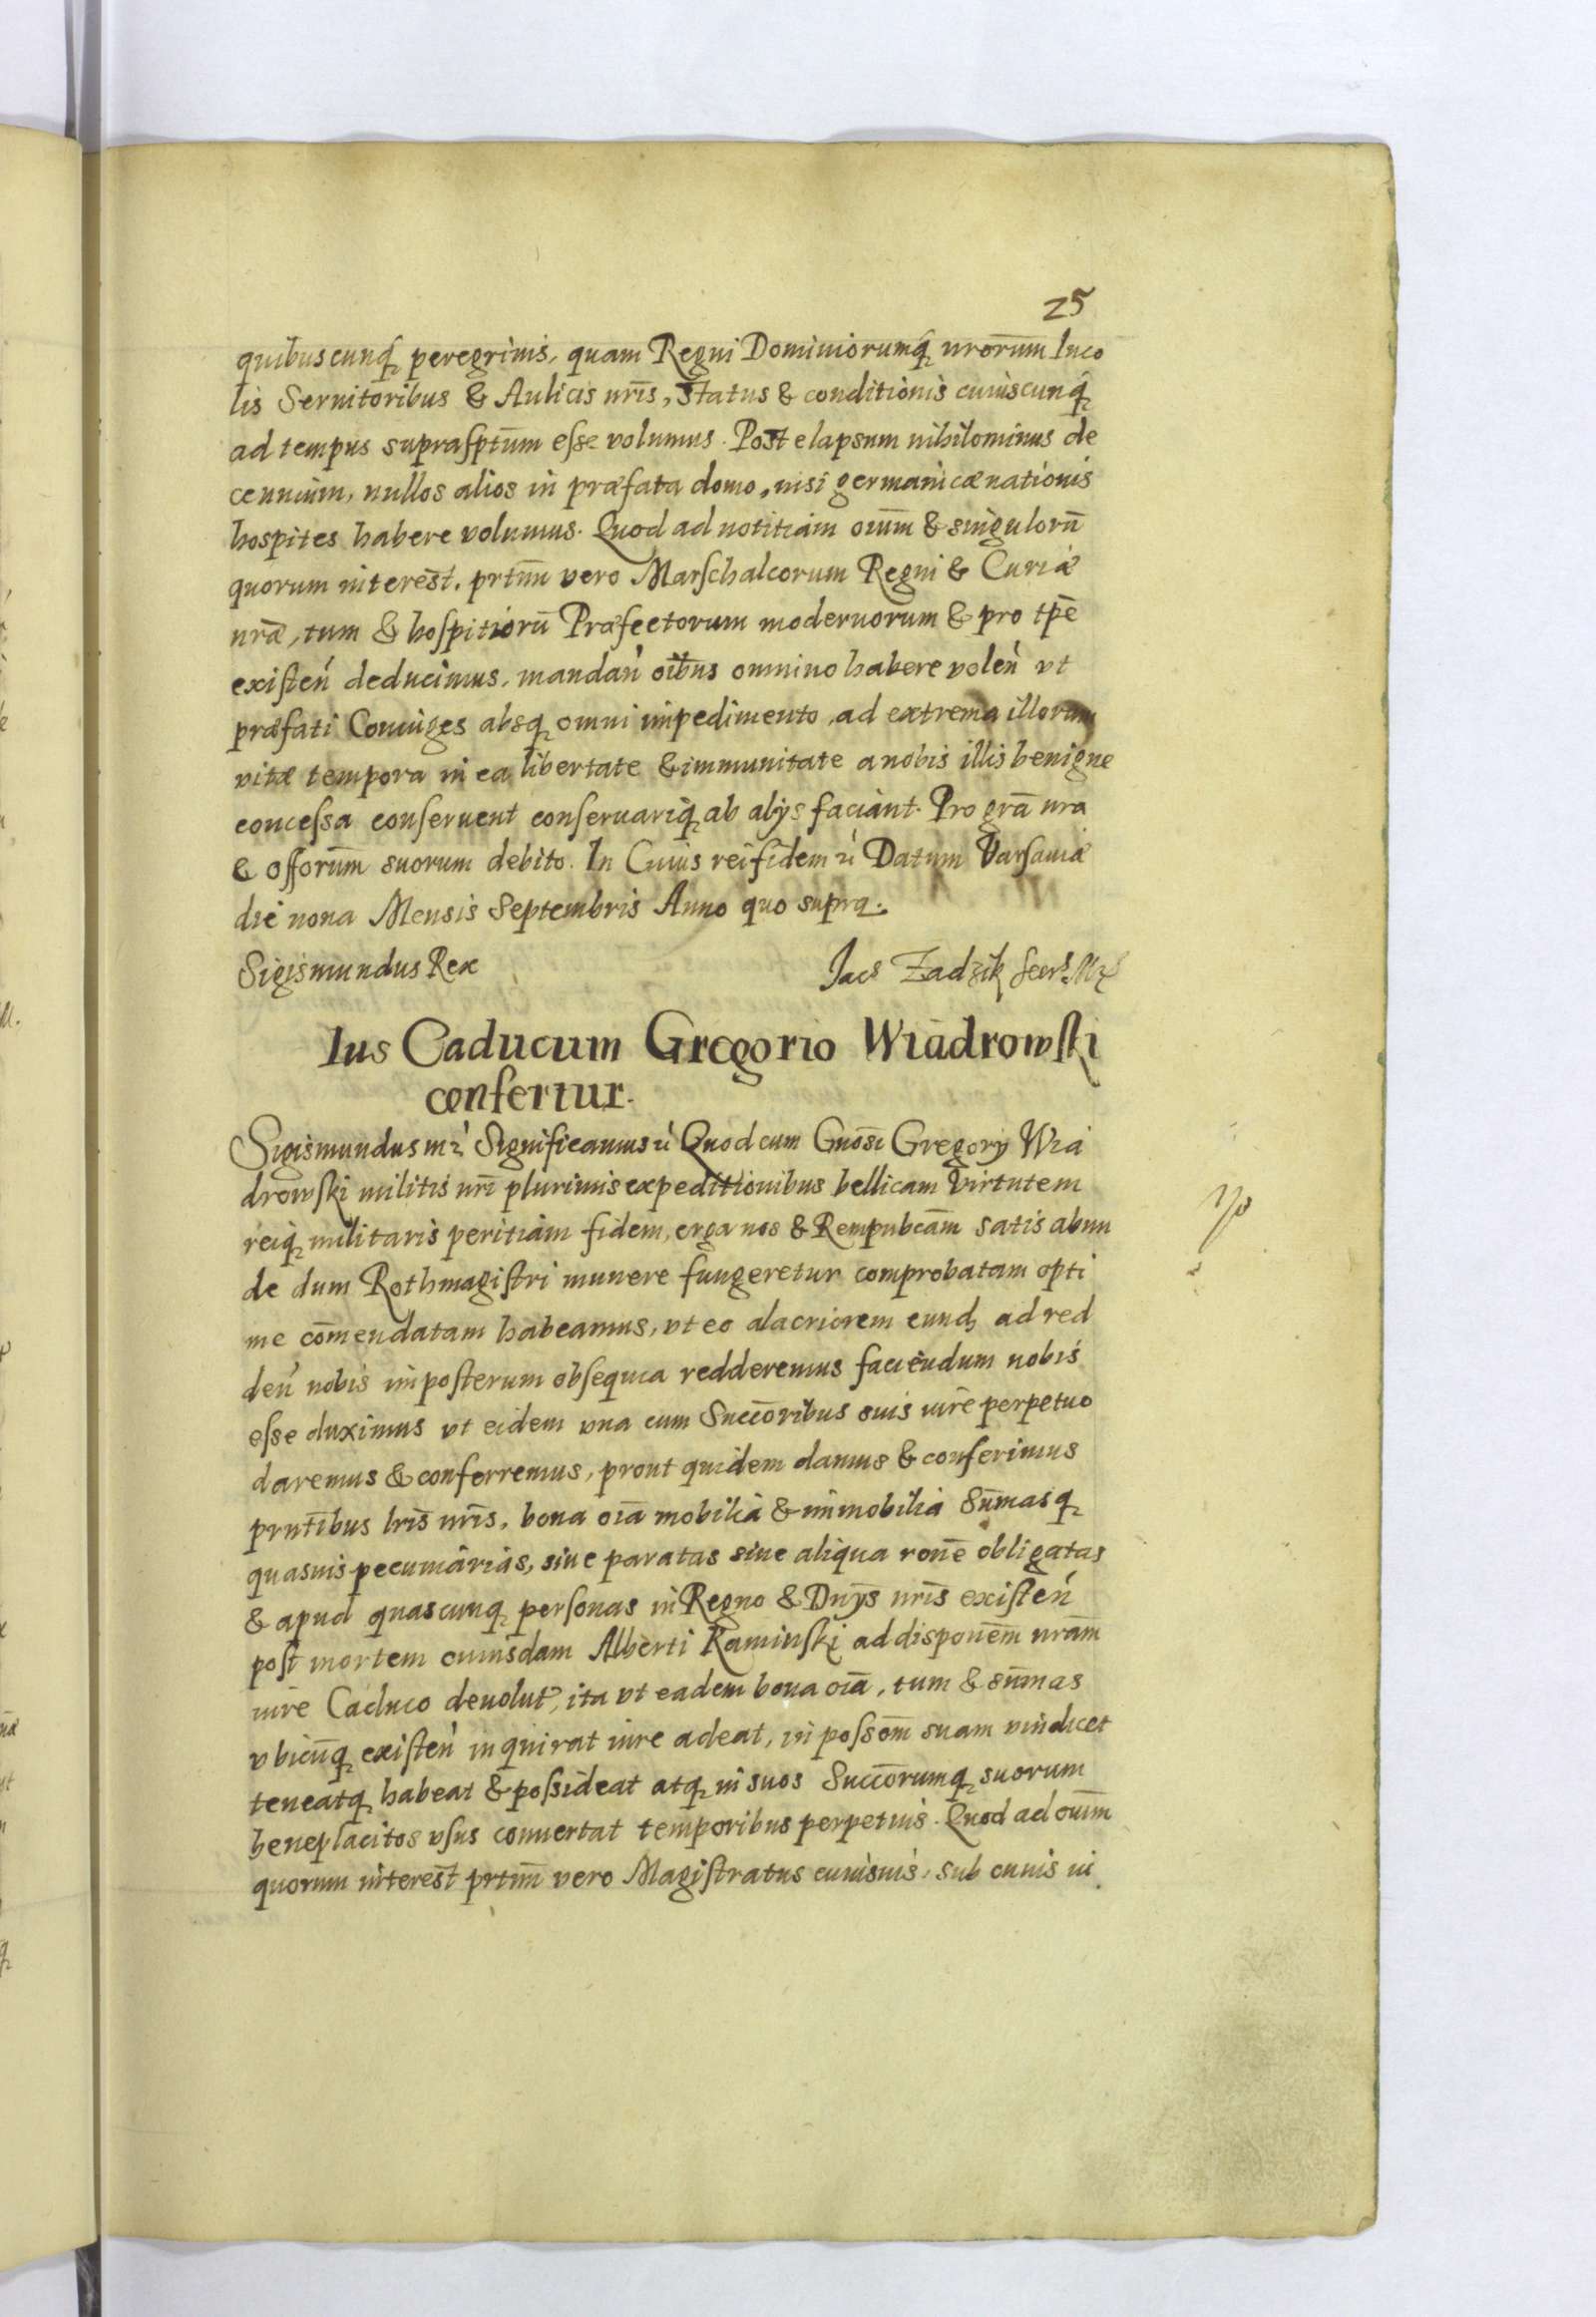 25
quibuscunq₃ peregrinis, quam Regni Dominiorumq₃ nrorūm Inco
lis Seruitoribus & Aulicis nrīs, Status & conditionis cuiuscunq₃
ad tempus suprasptūm esse volumus. Post elapsum nihilominus de
cennium, nullos alios in præfata domo, nisi germanicæ nationis
hospites habere volumus. Quod ad notitiam oium̄ & singulorū
quorum interest̄. prtim̄ vero Marschalcorum Regni & Curiæ
nrǣ, tum & hospitiorū Præfectorum modernorum & pro tpē
existeń deducimus, mandań oībus omnino habere voleń vt
præfati Coniuges absq₃ omni impedimento, ad extrema illorum
vitæ tempora in ea libertate & immunitate a nobis illis benigne
concessa conseruent conseruariq₃ ab alijs faciant. Pro grā nra
& offorūm suorum debito. In Cuius rei fidem ẻ Datum Varsauiæ
die nona Mensis Septembris Anno quo supra.
Sigismundus Rex Iacs Zadzik
Ius Caducum Gregorio Wiadrowski
confertur.
Sigismundus Significamus Quod cum Gnosī Gregorij Wia
drowski militis nrī plurimis expeditionibus bellicam Virtutem
reiq₃ militaris peritiam fidem, erga nos & Rempubcām satis abun
de dum Rothmagistri munere fungeretur comprobatam opti
me cōmendatam habeamus, vt eo alacriorem eund₃ ad red
deń nobis imposterum obsequia redderemus faciendum nobis
esse duximus vt eidem vna cum Succōribus suis iurē perpetuo
daremus & conferremus, prout quidem damus & conferimus
prntībus lrīs nrīs, bona oīa mobilia & immobilia Sūmasq₃
quasuis pecuniarias, siue paratas siue aliqua ronē obligatas
& apud quascunq₃ personas in Regno & Dnȳs nrīs existeń
post mortem cuiusdam Alberti Kaminski ad disponēm nrām
iure Caduco deuolut, ita vt eadem bona oīa, tum & sūmas
vbicūq₃ existeń inquirat iure adeat, in possōm suam vindicet
teneatq₃ habeat & possideat atq₃ in suos Succōrumq₃ suorum
beneplacitos vsus conuertat temporibus perpetuis. Quod ad ouīm
quorum interest̄ prtim̄ vero Magistratus cuiusuis, sub cuius iu